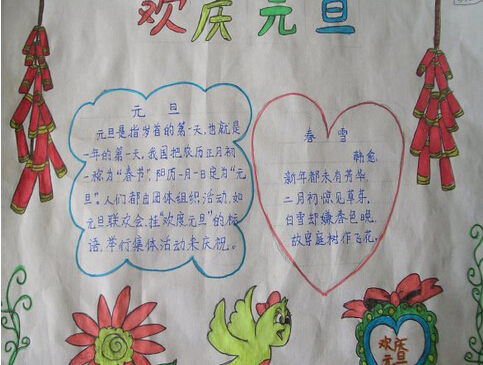 欢庆元旦
元旦
元旦是指岁首的第一天,也就是
一年的第一天,我国把农历正月初
一称为"春节",阳历一月一日定为"元
旦",人们都由团体组织活动,如
元旦联欢会,挂"欢度元旦"的标
语,举行集体活动来庆祝。
春雪
韩愈
新年都未有芳华,
二月初惊见草芽,
白雪却嫌春色晚,
故穿庭树作飞花。
欢庆
元旦